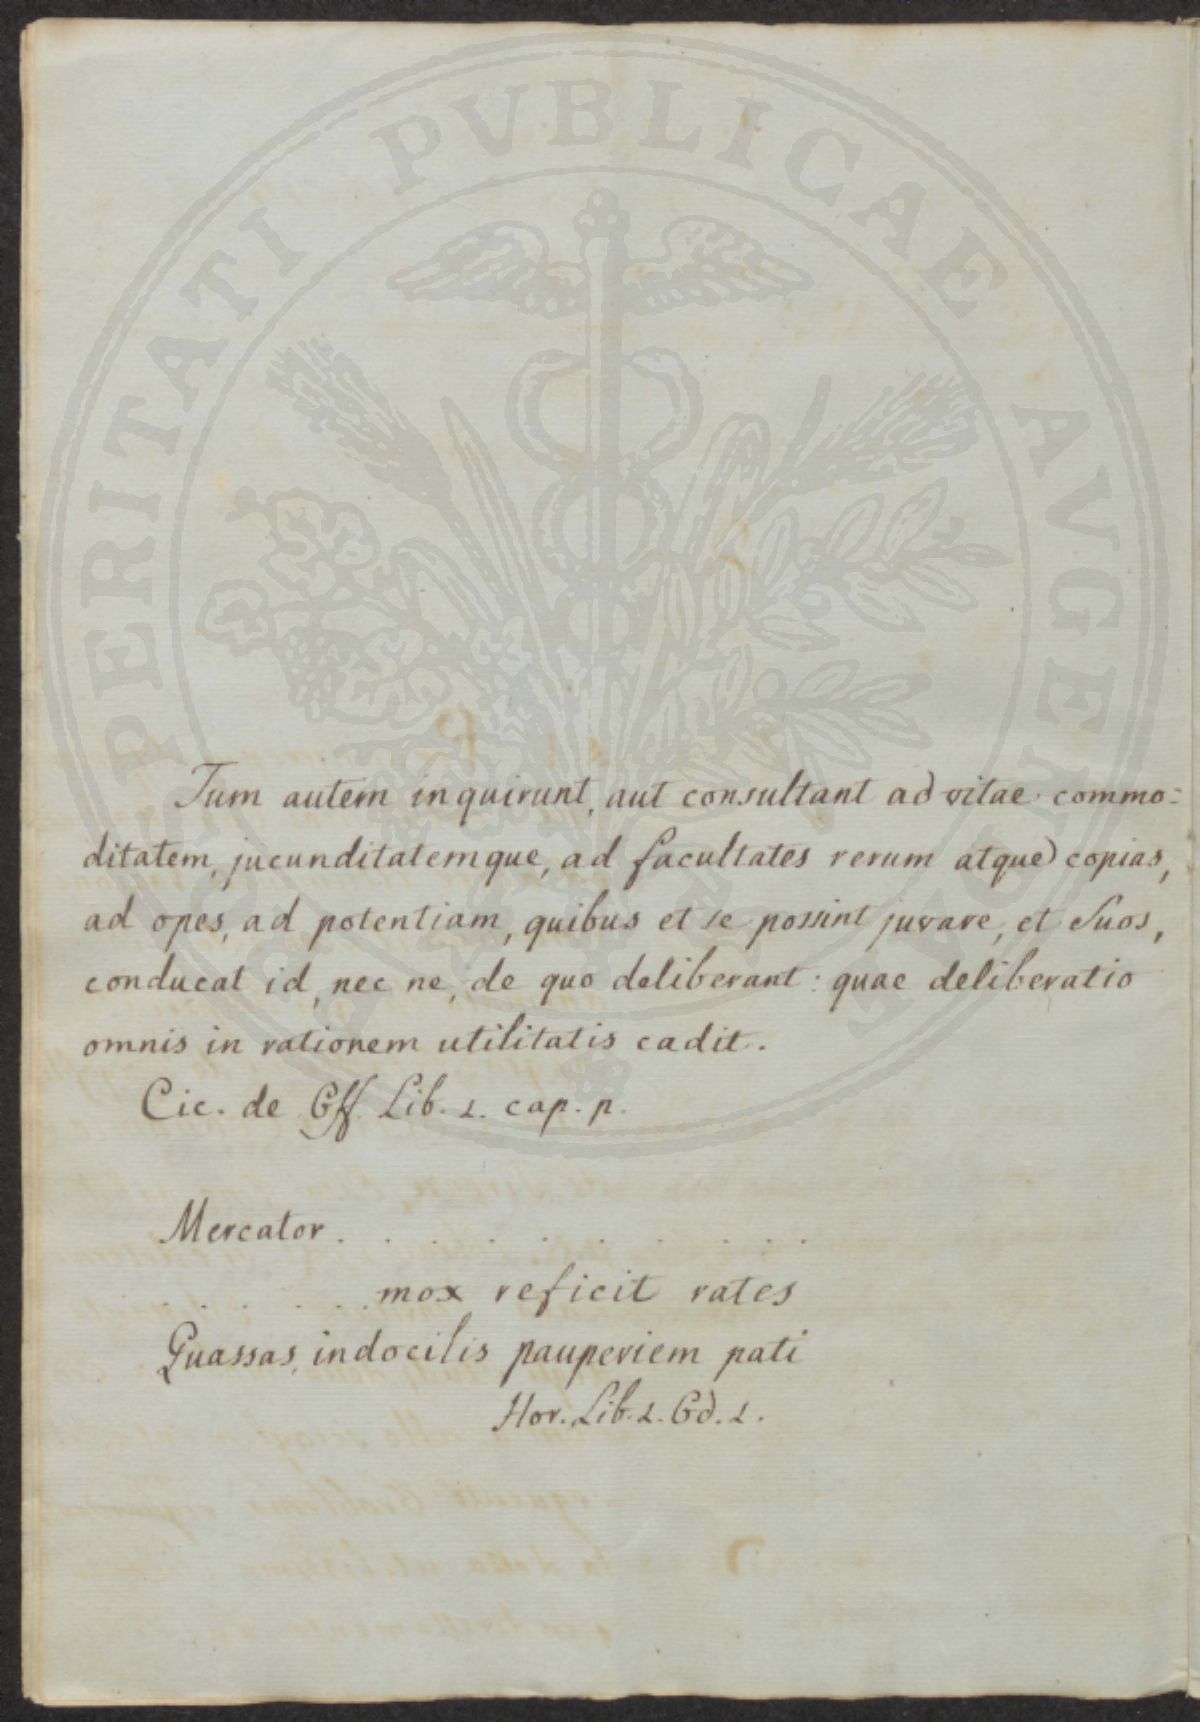 PROSPERITATI PVBLICAE AVGENDAE
Tum autem inquirunt, aut consultant ad vitae commo=
ditatem, jucunditatemque, ad facultates rerum atque copias,
ad opes, ad potentiam, quibus et se possint juvare, et Suos,
conducat id, nec ne, de quo deliberant: quae deliberatio
omnis in rationem utilitatis cadit.
Cic. de Off. Lib. 1. cap. p.
Mercator . . . . . . . . .
. . . . . mox reficit rates
Quassas, indocilis pauperiem pati
Hor. Lib. 1. Od. 1.